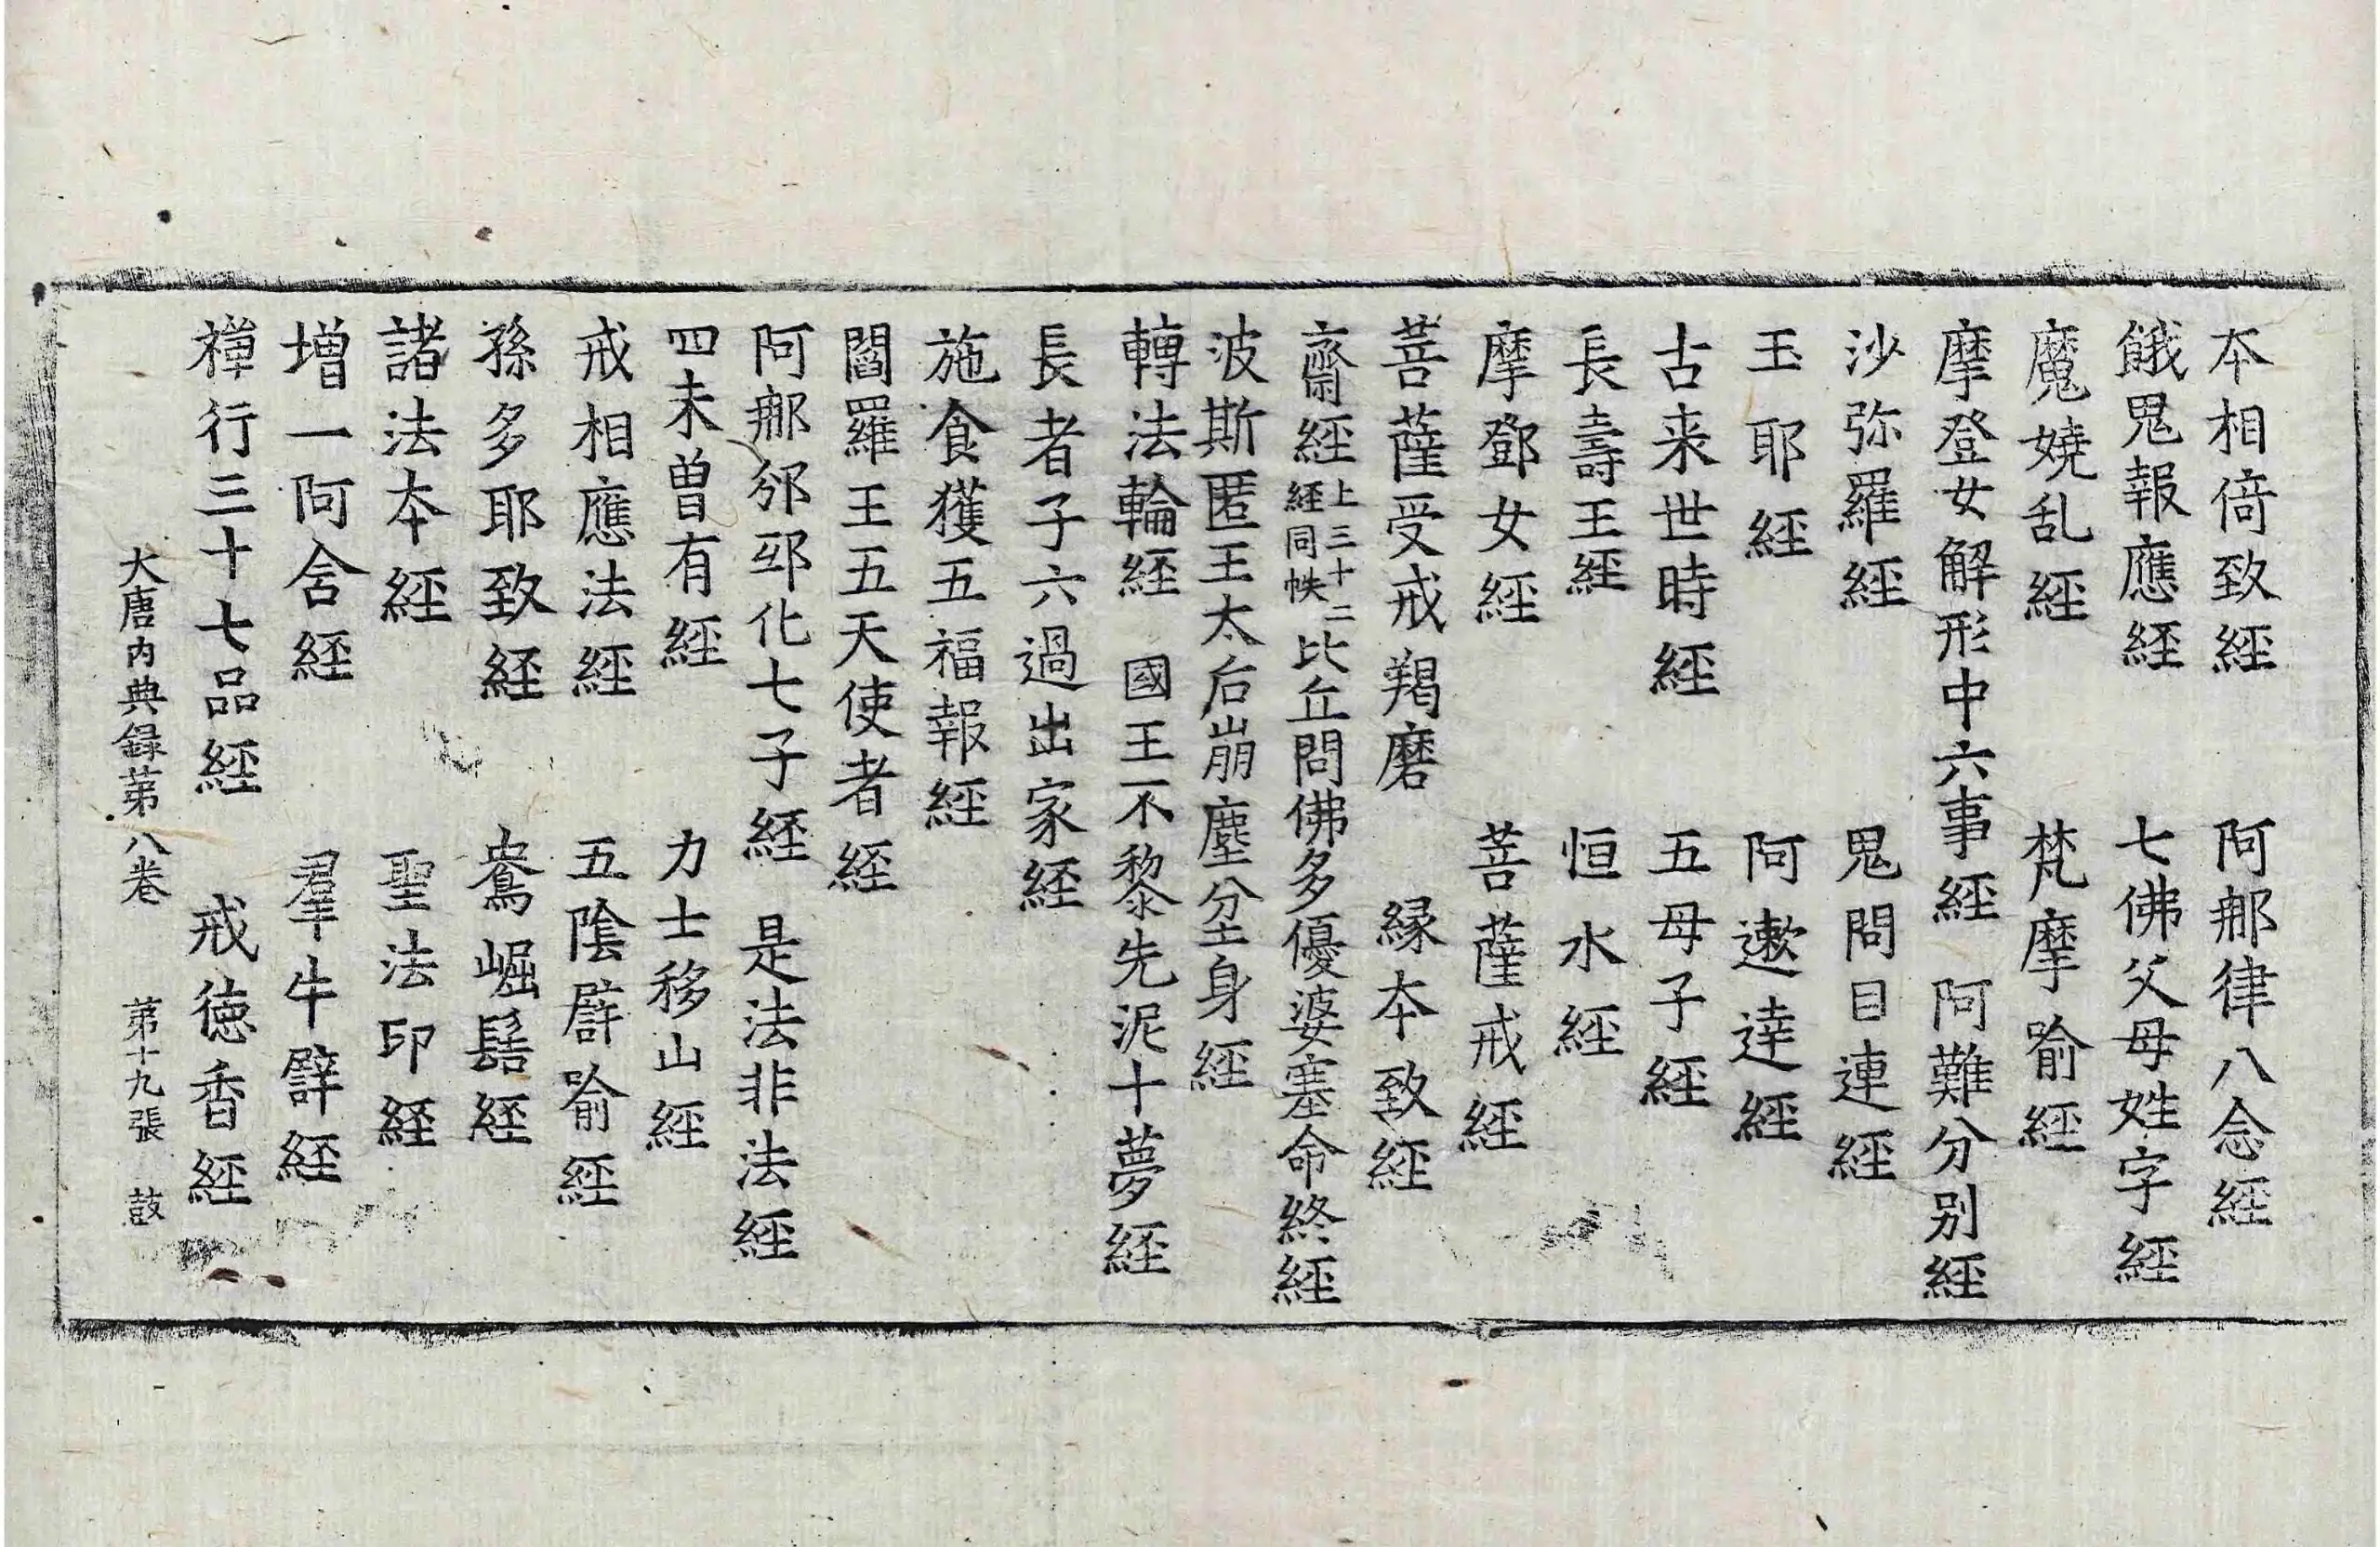 本相倚致經　阿那律八念經
餓鬼報應経　七佛父母姓字經
魔嬈乱經　梵摩喻經
摩登女解形中六事經　阿難分别經
沙弥羅經　鬼問目連經
玉耶經　阿遬達經
古来世時經　五母子經
長壽王經　恒水經
摩鄧女經　菩薩戒經
菩薩受戒羯磨　縁本致經
齋經上三十二經同帙比丘問佛多優婆塞命終經
波斯匿王太后崩塵坌身經
轉法輪経　國王不黎先泥十夢經
長者子六過出家経
施食獲五福報經
閻羅王五天使者経
阿那邠邸化七子経　是法非法經
四未曾有經　力士移山經
戒相應法經　五陰譬喻經
孫多耶致経　鴦崛髻経
諸法本經　聖法印経
增一阿含経　羣牛譬經
禅行三十七品經　戒徳香經
大唐内典録第八卷　第十九張　鼓